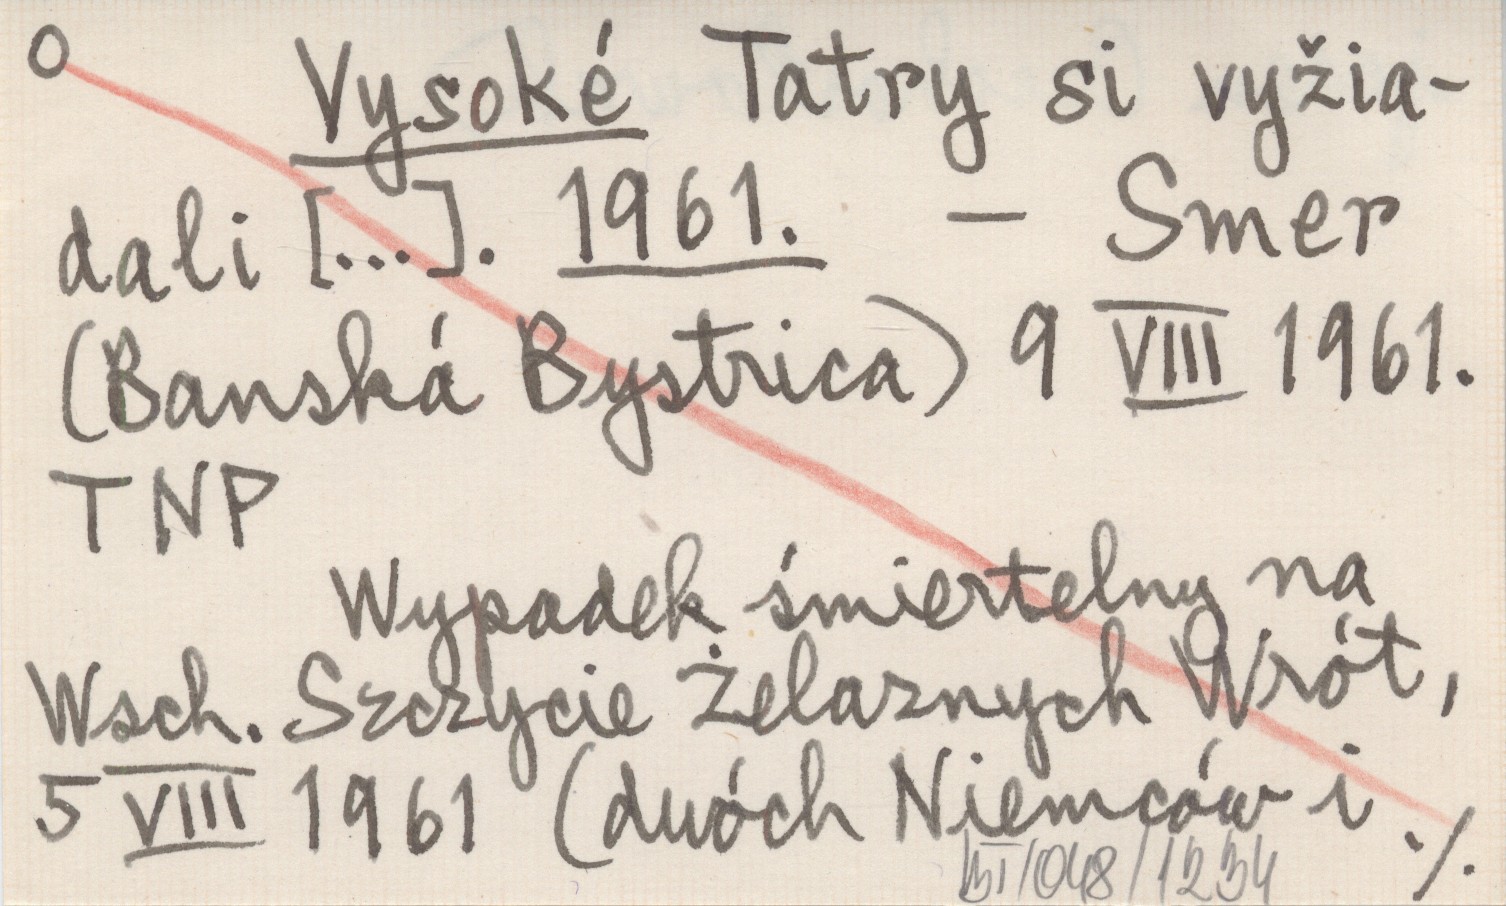 O Vysoké Tatry si vyžia-
dali [...]. 1961. — Smer
(Banská Bystrica) 9 VIII 1961.
TNP
Wypadek śmiertelny na
Wsch. Szczycie Żelaznych Wrót,
5 VIII 1961 (dwóch Niemców i ./.
/048/1234